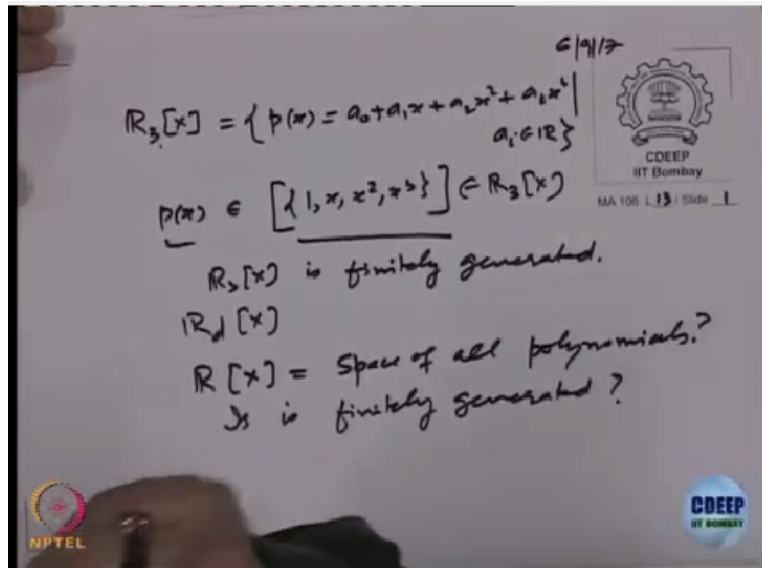 6/9/17
ℝ₃[x] = { p(x) = a₀ + a₁x + a₂x² + a₃x³ |
aᵢ ∈ ℝ }
CDEEP
IIT Bombay
MA 106 L 13 / Slide 1
p(x) ∈ [{1, x, x², x³}] ∈ ℝ₃[x]
ℝ₃[x] is finitely generated.
ℝd [x]
ℝ [x] = Space of all polynomials.?
Is is finitely generated ?
NPTEL
CDEEP
IIT BOMBAY